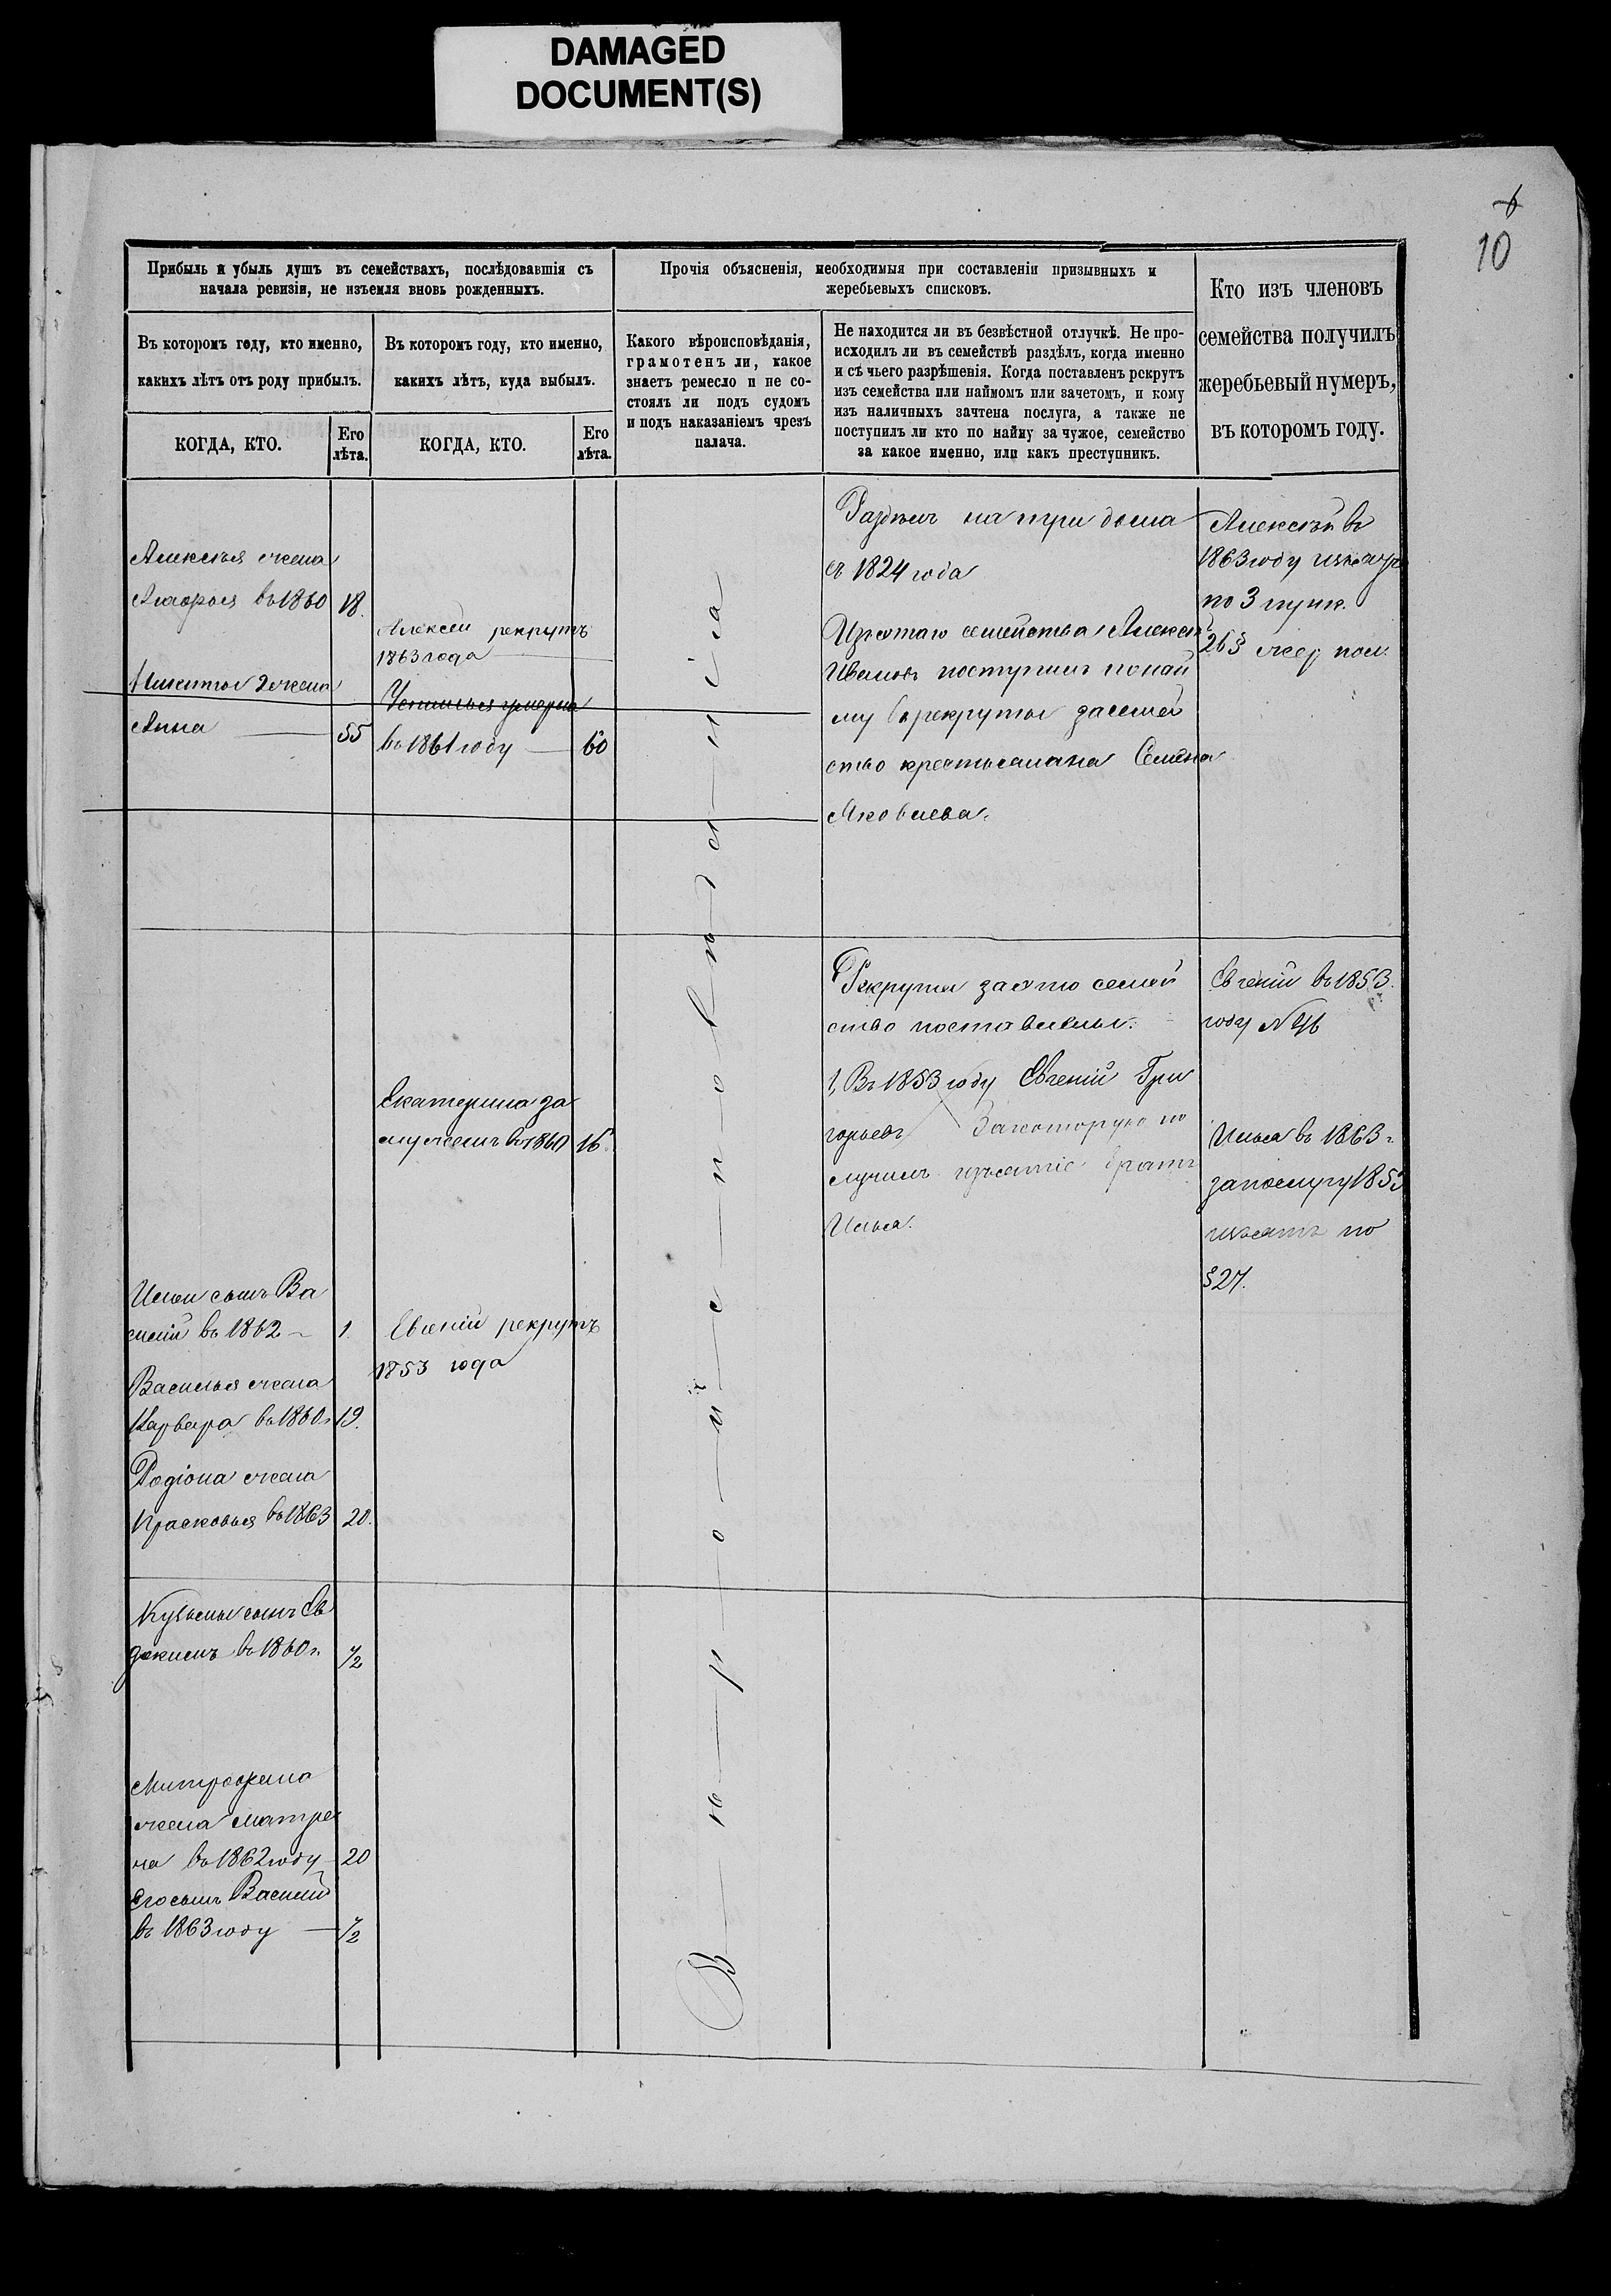 DAMAGED
DOCUMENT(S)
6
10
Прибыль и убыль душъ въ семействахъ, послѣдовавшія съ
начала ревизіи, не изъемля вновь рожденныхъ.
Въ которомъ году, кто именно,
какихъ лѣтъ отъ роду прибылъ.
КОГДА, КТО.
Его
лѣта.
Въ которомъ году, кто именно,
какихъ лѣтъ, куда выбылъ.
КОГДА, КТО.
Его
лѣта.
Прочія объясненія, необходимыя при составленіи призывныхъ и
жеребьевыхъ списковъ.
Какого вѣроисповѣданія,
грамотенъ ли, какое
знаетъ ремесло и не со-
стоялъ ли подъ судомъ
и подъ наказаніемъ чрезъ
палача.
Не находится ли въ безвѣстной отлучкѣ. Не про-
исходилъ ли въ семействѣ раздѣлъ, когда именно
и съ чьего разрѣшенія. Когда поставленъ рекрутъ
изъ семейства или наймомъ или зачетомъ, и кому
изъ наличныхъ зачтена послуга, а также не
поступилъ ли кто по найму за чужое, семейство
за какое именно, или какъ преступникъ.
Кто изъ членовъ
семейства получилъ
жеребьевый нумеръ,
въ которомъ году.
Алексѣя жена
Марья въ 1860 18.
Никиты 2 жена
Анна 55
Алексѣй рекрутъ
1863 года
Устинья умерла
въ 1861 году 60
Раздѣлъ на три дома
съ 1824 года
Изъ этаго семейства Алексѣй
Ивановъ поступилъ по най
му въ рекруты за семей
ство крестьянина Семена
Яковлева.
Алексѣй въ
1863 году
по 3 пунк.
26 §
Екатерина за
мужемъ въ 1860 16.
Рекруты за это семей
ство поставлены.
1, Въ 1853 году Евгеній Гри
горьевъ За которую по
лучилъ изъятіе братъ
Илья.
Евгеній въ 1853.
году №
Илья въ 1863 г.
за послугу 1853
изъятъ по
§ 27.
Ильи сынъ Ва
силій въ 1862 1.
Василья жена
Варвара въ 1860 г. 19.
Родіона жена
Прасковья въ 1863 20.
Евгеній рекрутъ
1853 года
Кузьмы сынъ Ев
докимъ въ 1860 г. 1/2
Митрофана
жена Матре
на въ 1862 году 20
Его сынъ Василій
въ 1863 году 1/2
Вѣроисповѣданія